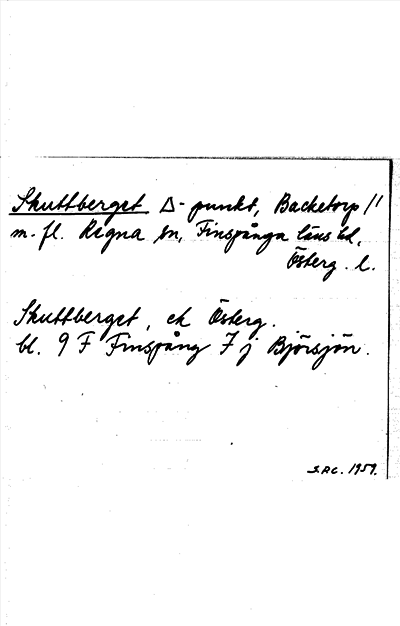 Skuttberget Δ-punkt, Backetorp 1/1
m. fl. Regna sn, Finspånga läns hd,
Österg. l.
Skuttberget, ek Österg.
bl. 9 F Finspång 7 j Björsjön.
1959.